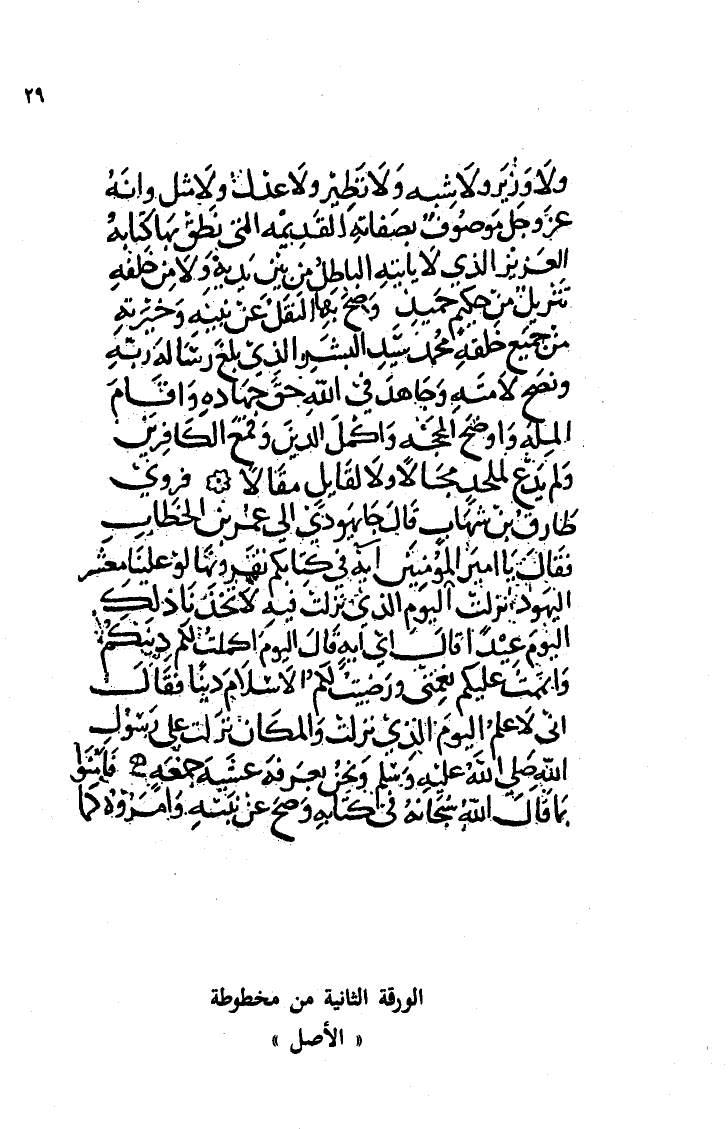 ٢٩
ولا وزير ولا شبيه ولا نظير ولا عدل ولا مثل وانه
عز وجل موصوف بصفاته القديمه التي نطق بها كتابه
العزيز الذي لا ياتيه الباطل من بين يديه ولا من خلفه
تنزيل من حكيم حميد وصح بها النقل عن نبيه وخيرته
من جميع خلقه محمد سيد البشر الذي بلغ رسالة ربه
ونصح لامته وجاهد في الله حق جهاده واقام
المله واوضح المحجه واكمل الدين وقمع الكافرين
ولم يدع لملحد مجالا ولا لقايل مقالا فروي
طارق بن شهاب قال جا يهودي الى عمر بن الخطاب
فقال يا امير المؤمنين ايه في كتابكم تقرونها لو علينا معشر
اليهود نزلت اليوم الذي نزلت فيه لاتخذنا ذلك
اليوم عيدا قال اي ايه قال اليوم اكملت لكم دينكم
واتممت عليكم نعمتي ورضيت لكم الاسلام دينا فقال
اني لاعلم اليوم الذي نزلت والمكان نزلت على رسول
الله صلى الله عليه وسلم ونحن بعرفة عشية جمعه فآمنوا
بما قال الله سبحانه في كتابه وصح عن نبيه وامروه كما
الورقة الثانية من مخطوطة
« الأصل »